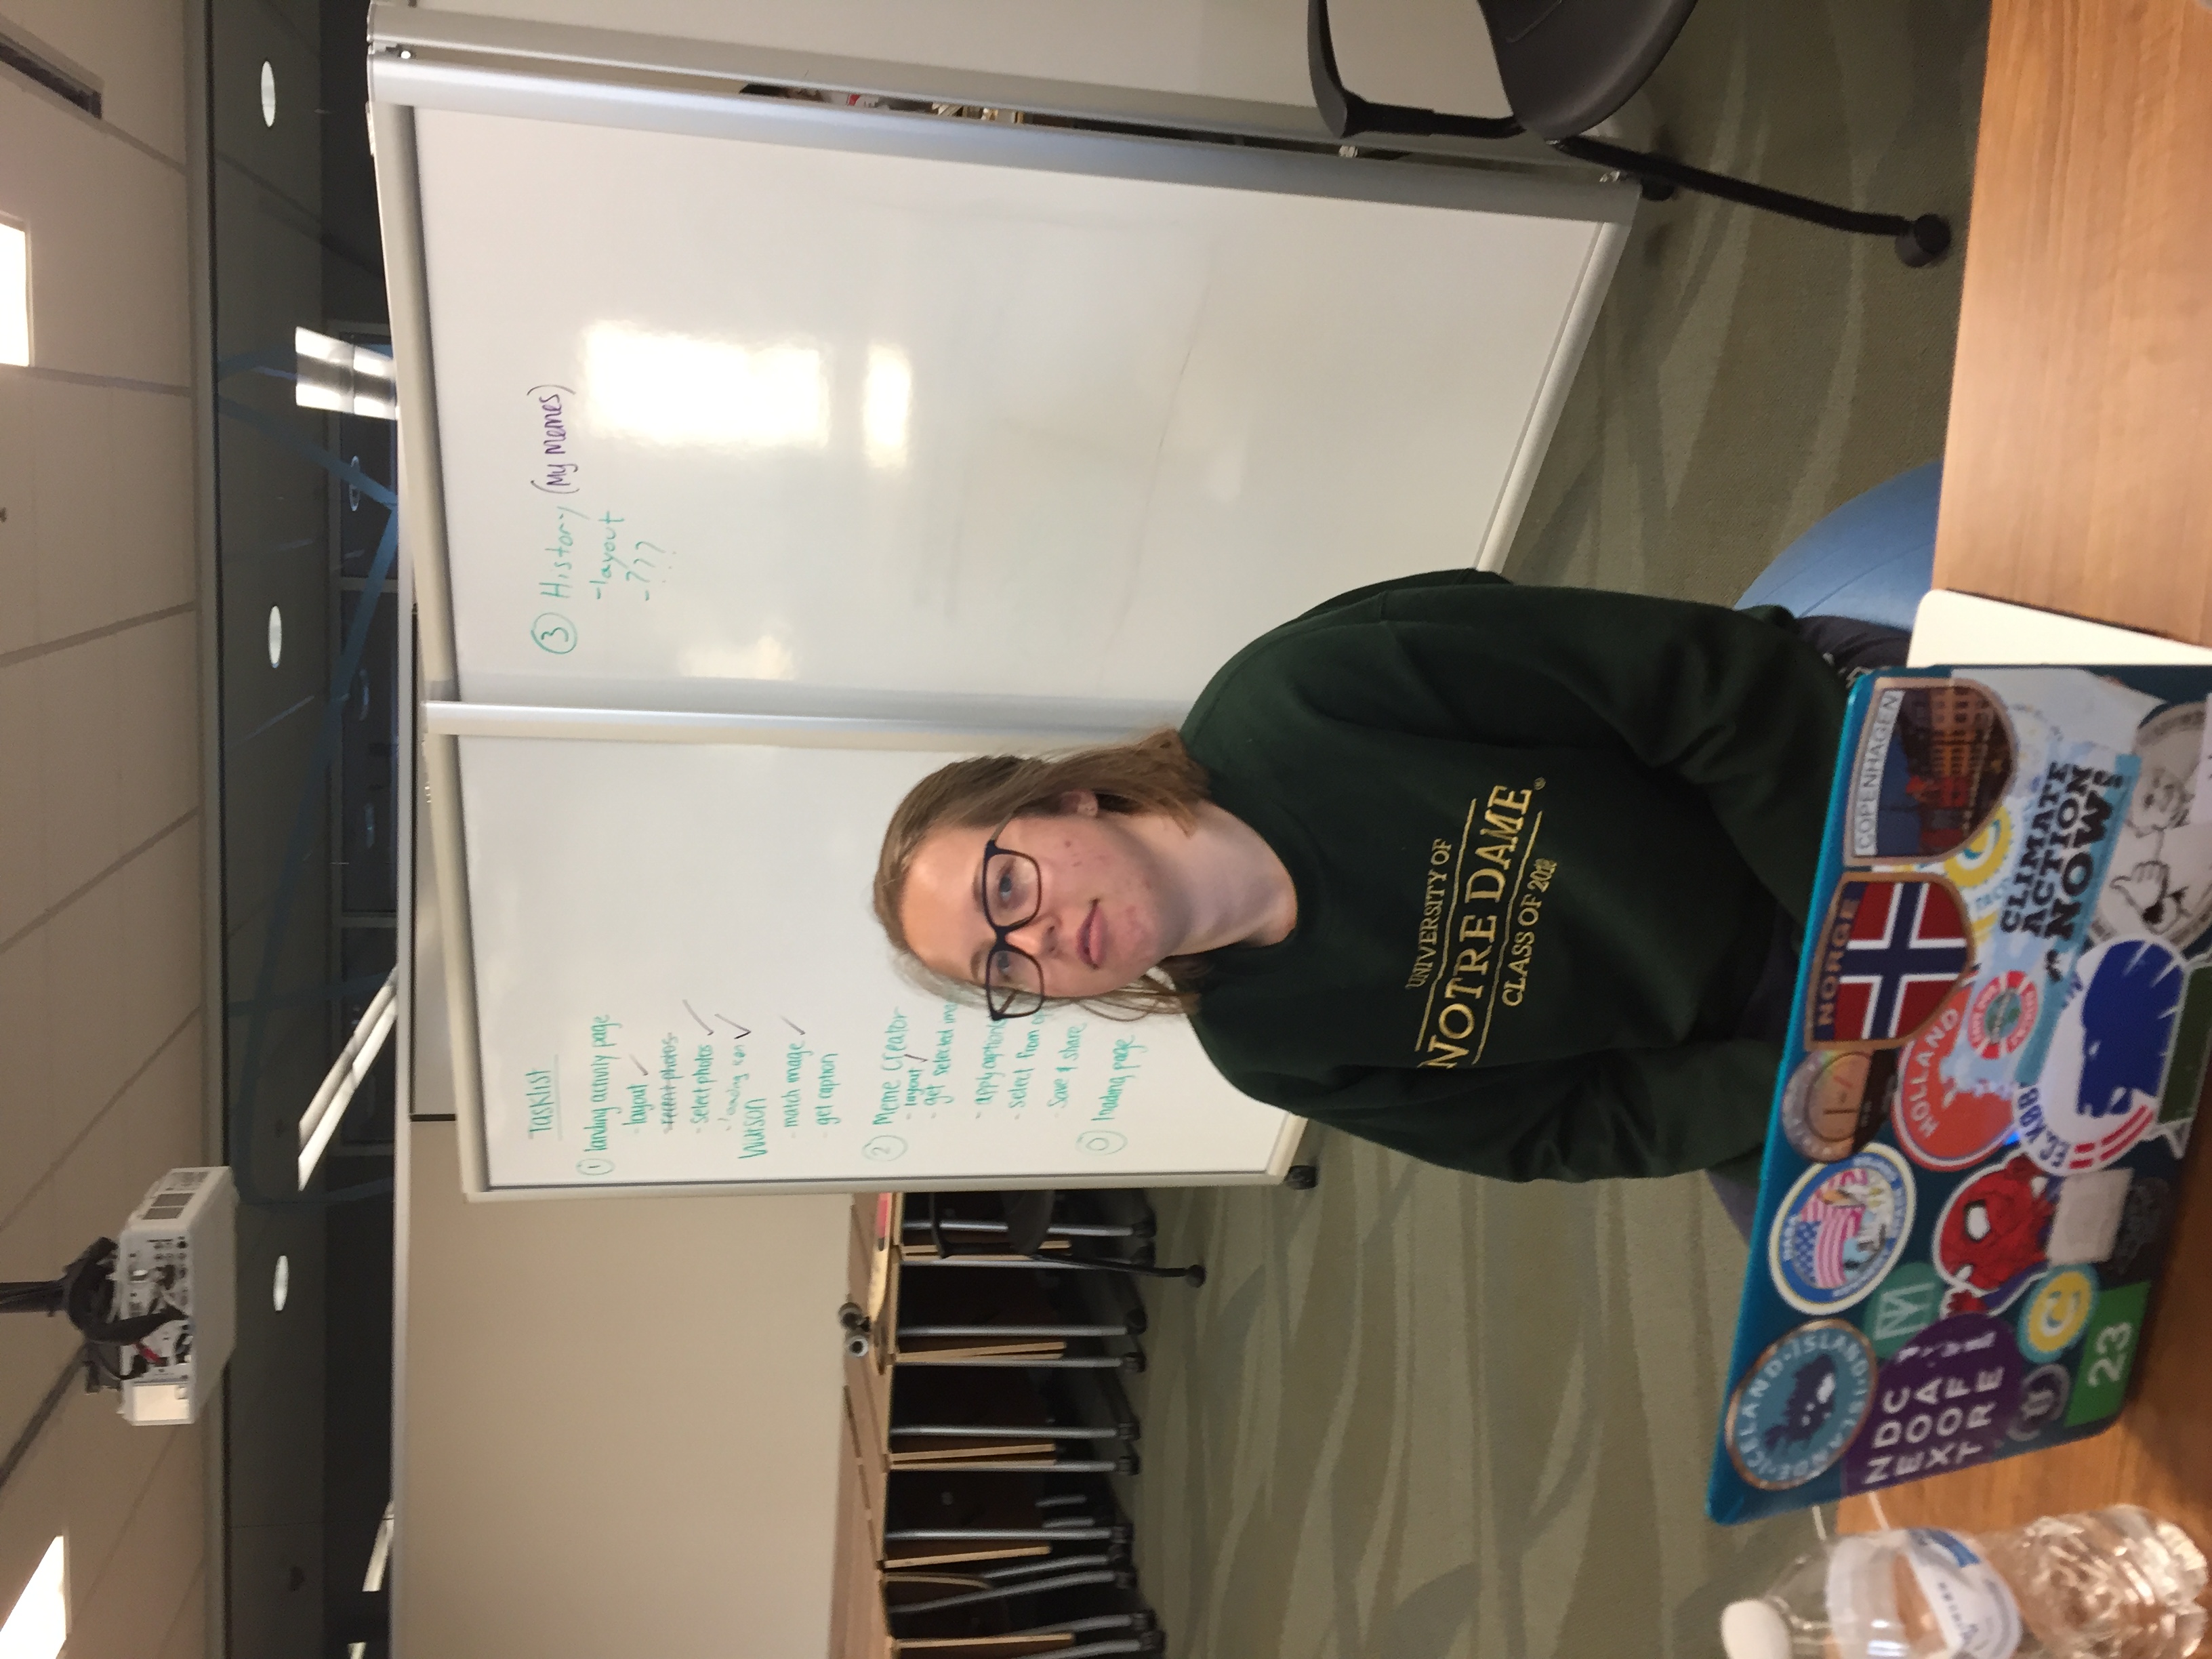 Tasklist
① landing activity page
- layout ✓
- recent photos
- select photos ✓
- loading ✓
Watson
- match image ✓
- get caption
② Meme Creator
- layout ✓
- get selected
- apply caption
- select from
- Save & share
⓪ loading page
③ History (My Memes)
- layout
- ???
UNIVERSITY OF
NOTRE DAME
CLASS OF
ICELAND · ISLANDE · ISLAND
NASA
NORGE
COPENHAGEN
HOLLAND
CLIMATE
ACTION
NOW!
23